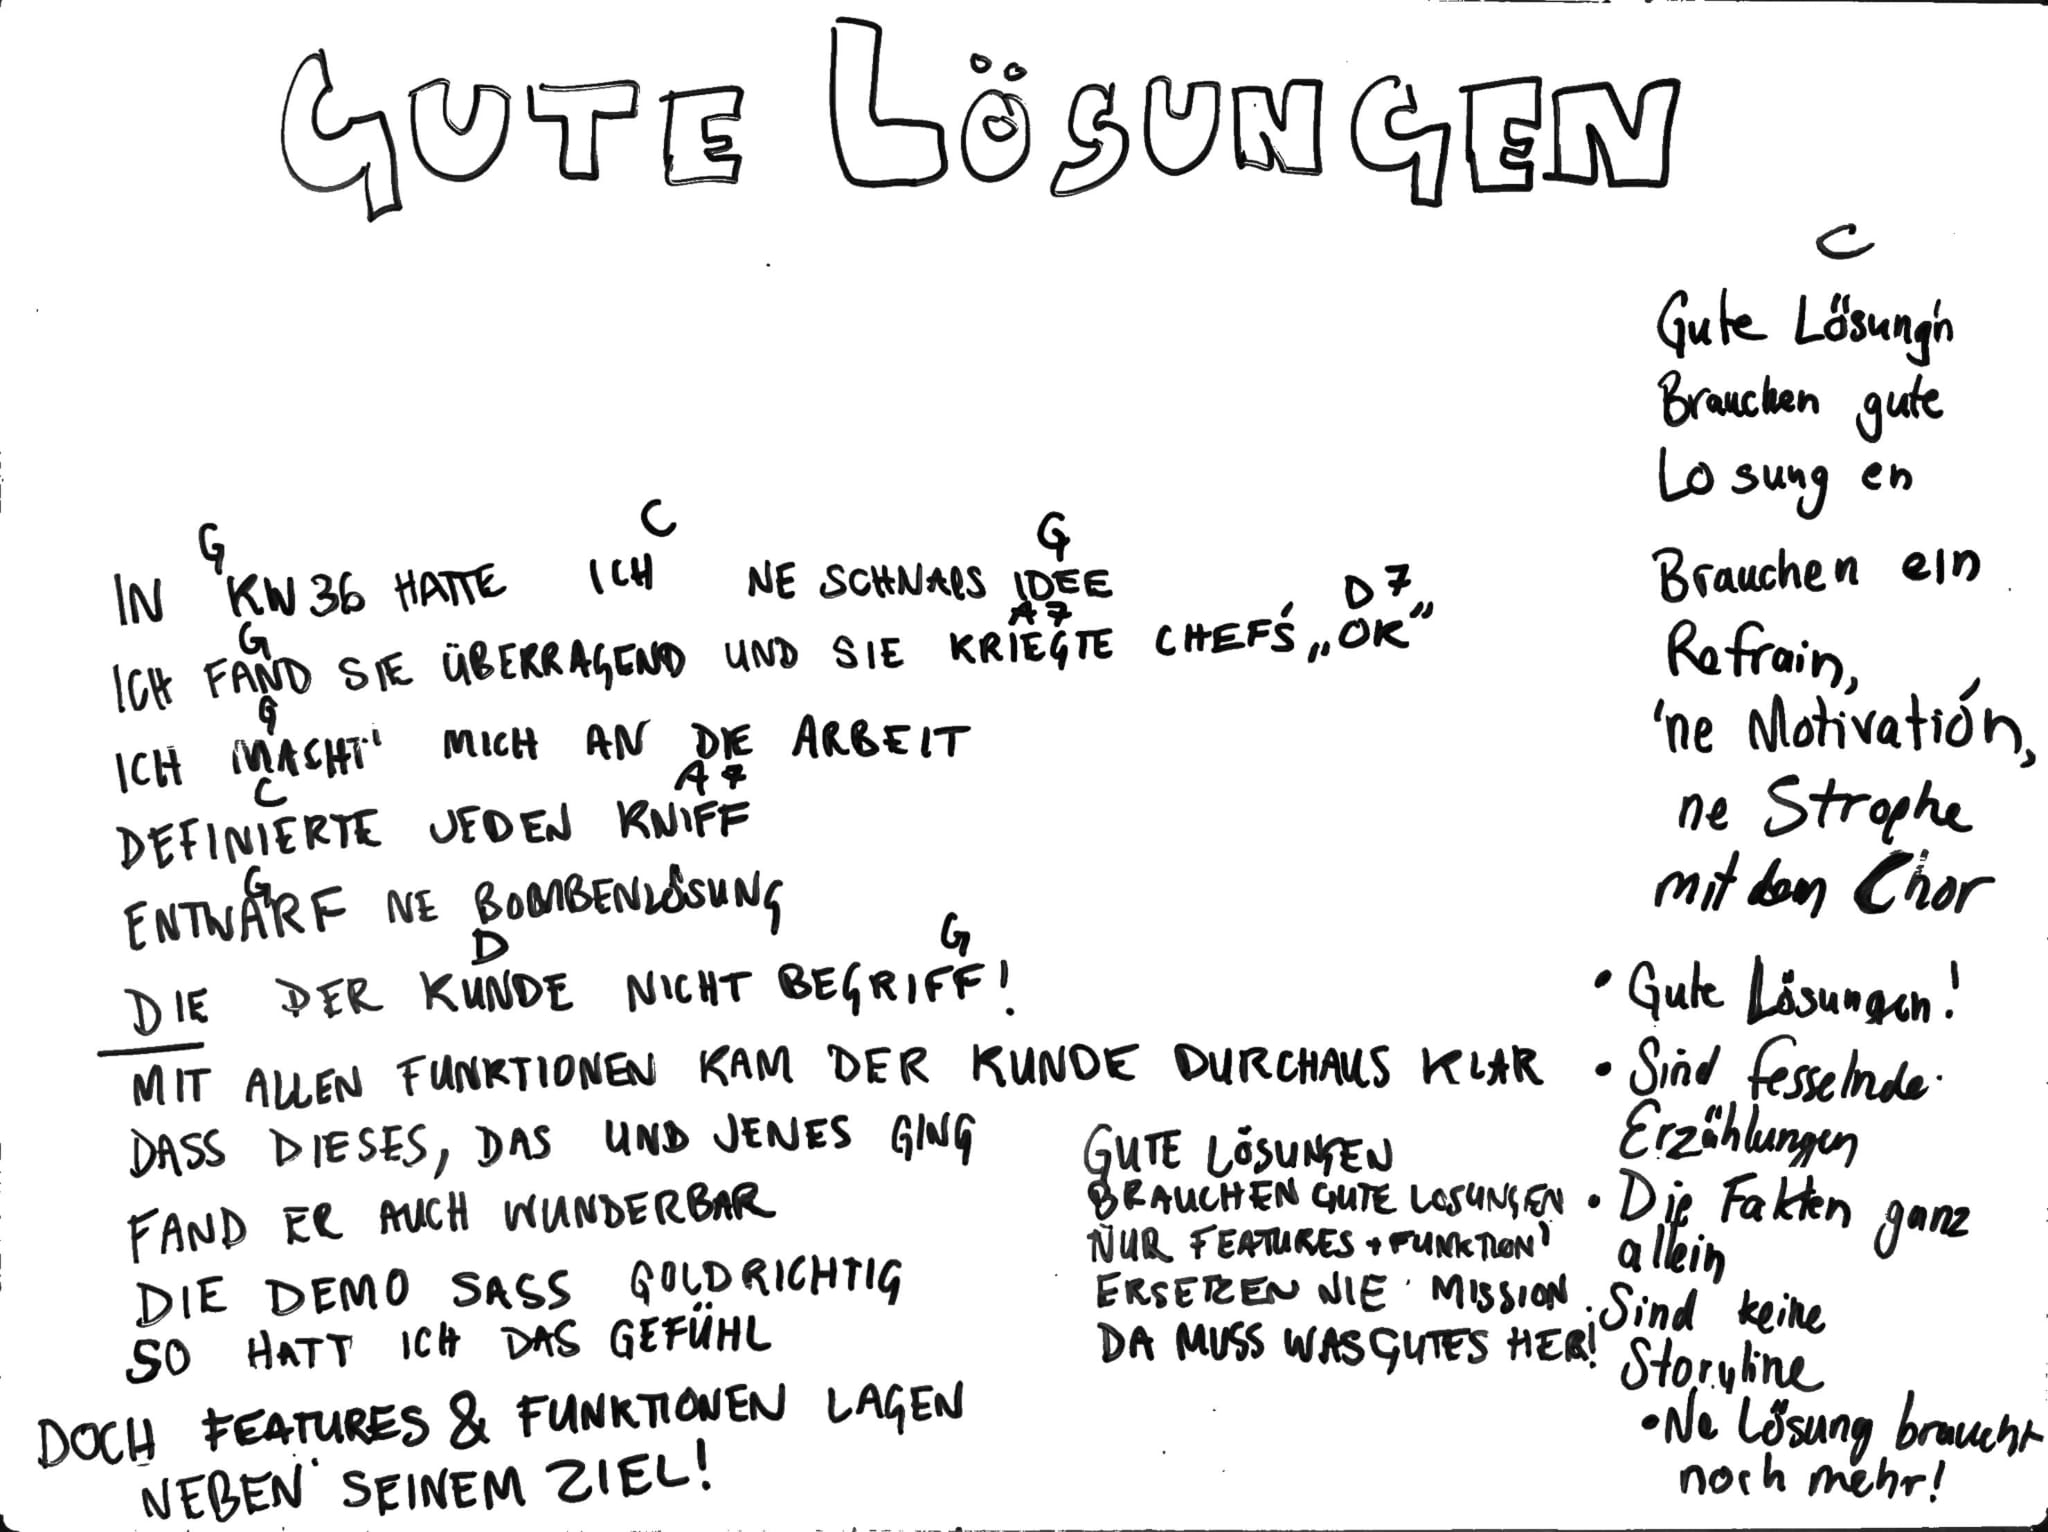 GUTE LÖSUNGEN
G C G
IN KW 36 HATTE ICH NE SCHNAPS IDEE
G A7 D7
ICH FAND SIE ÜBERRAGEND UND SIE KRIEGTE CHEF'S „OK“
G
ICH MACHT' MICH AN DIE ARBEIT
C A7
DEFINIERTE JEDEN KNIFF
G
ENTWARF NE BOMBENLÖSUNG
D G
DIE DER KUNDE NICHT BEGRIFF!
MIT ALLEN FUNKTIONEN KAM DER KUNDE DURCHAUS KLAR
DASS DIESES, DAS UND JENES GING
FAND ER AUCH WUNDERBAR
DIE DEMO SASS GOLDRICHTIG
SO HATT ICH DAS GEFÜHL
DOCH FEATURES & FUNKTIONEN LAGEN
NEBEN SEINEM ZIEL!
GUTE LÖSUNGEN
BRAUCHEN GUTE LOSUNGEN
NUR FEATURES + FUNKTION'
ERSETZEN NIE MISSION
DA MUSS WAS GUTES HER!
C
Gute Lösung'n
Brauchen gute
Lo sung en
Brauchen ein
Refrain,
'ne Motivatión,
ne Strophe
mit dem Chor
• Gute Lösungen!
• Sind fesselnde
Erzählungen
• Die Fakten ganz
allein
• Sind keine
Storyline
• Ne Lösung braucht
noch mehr!